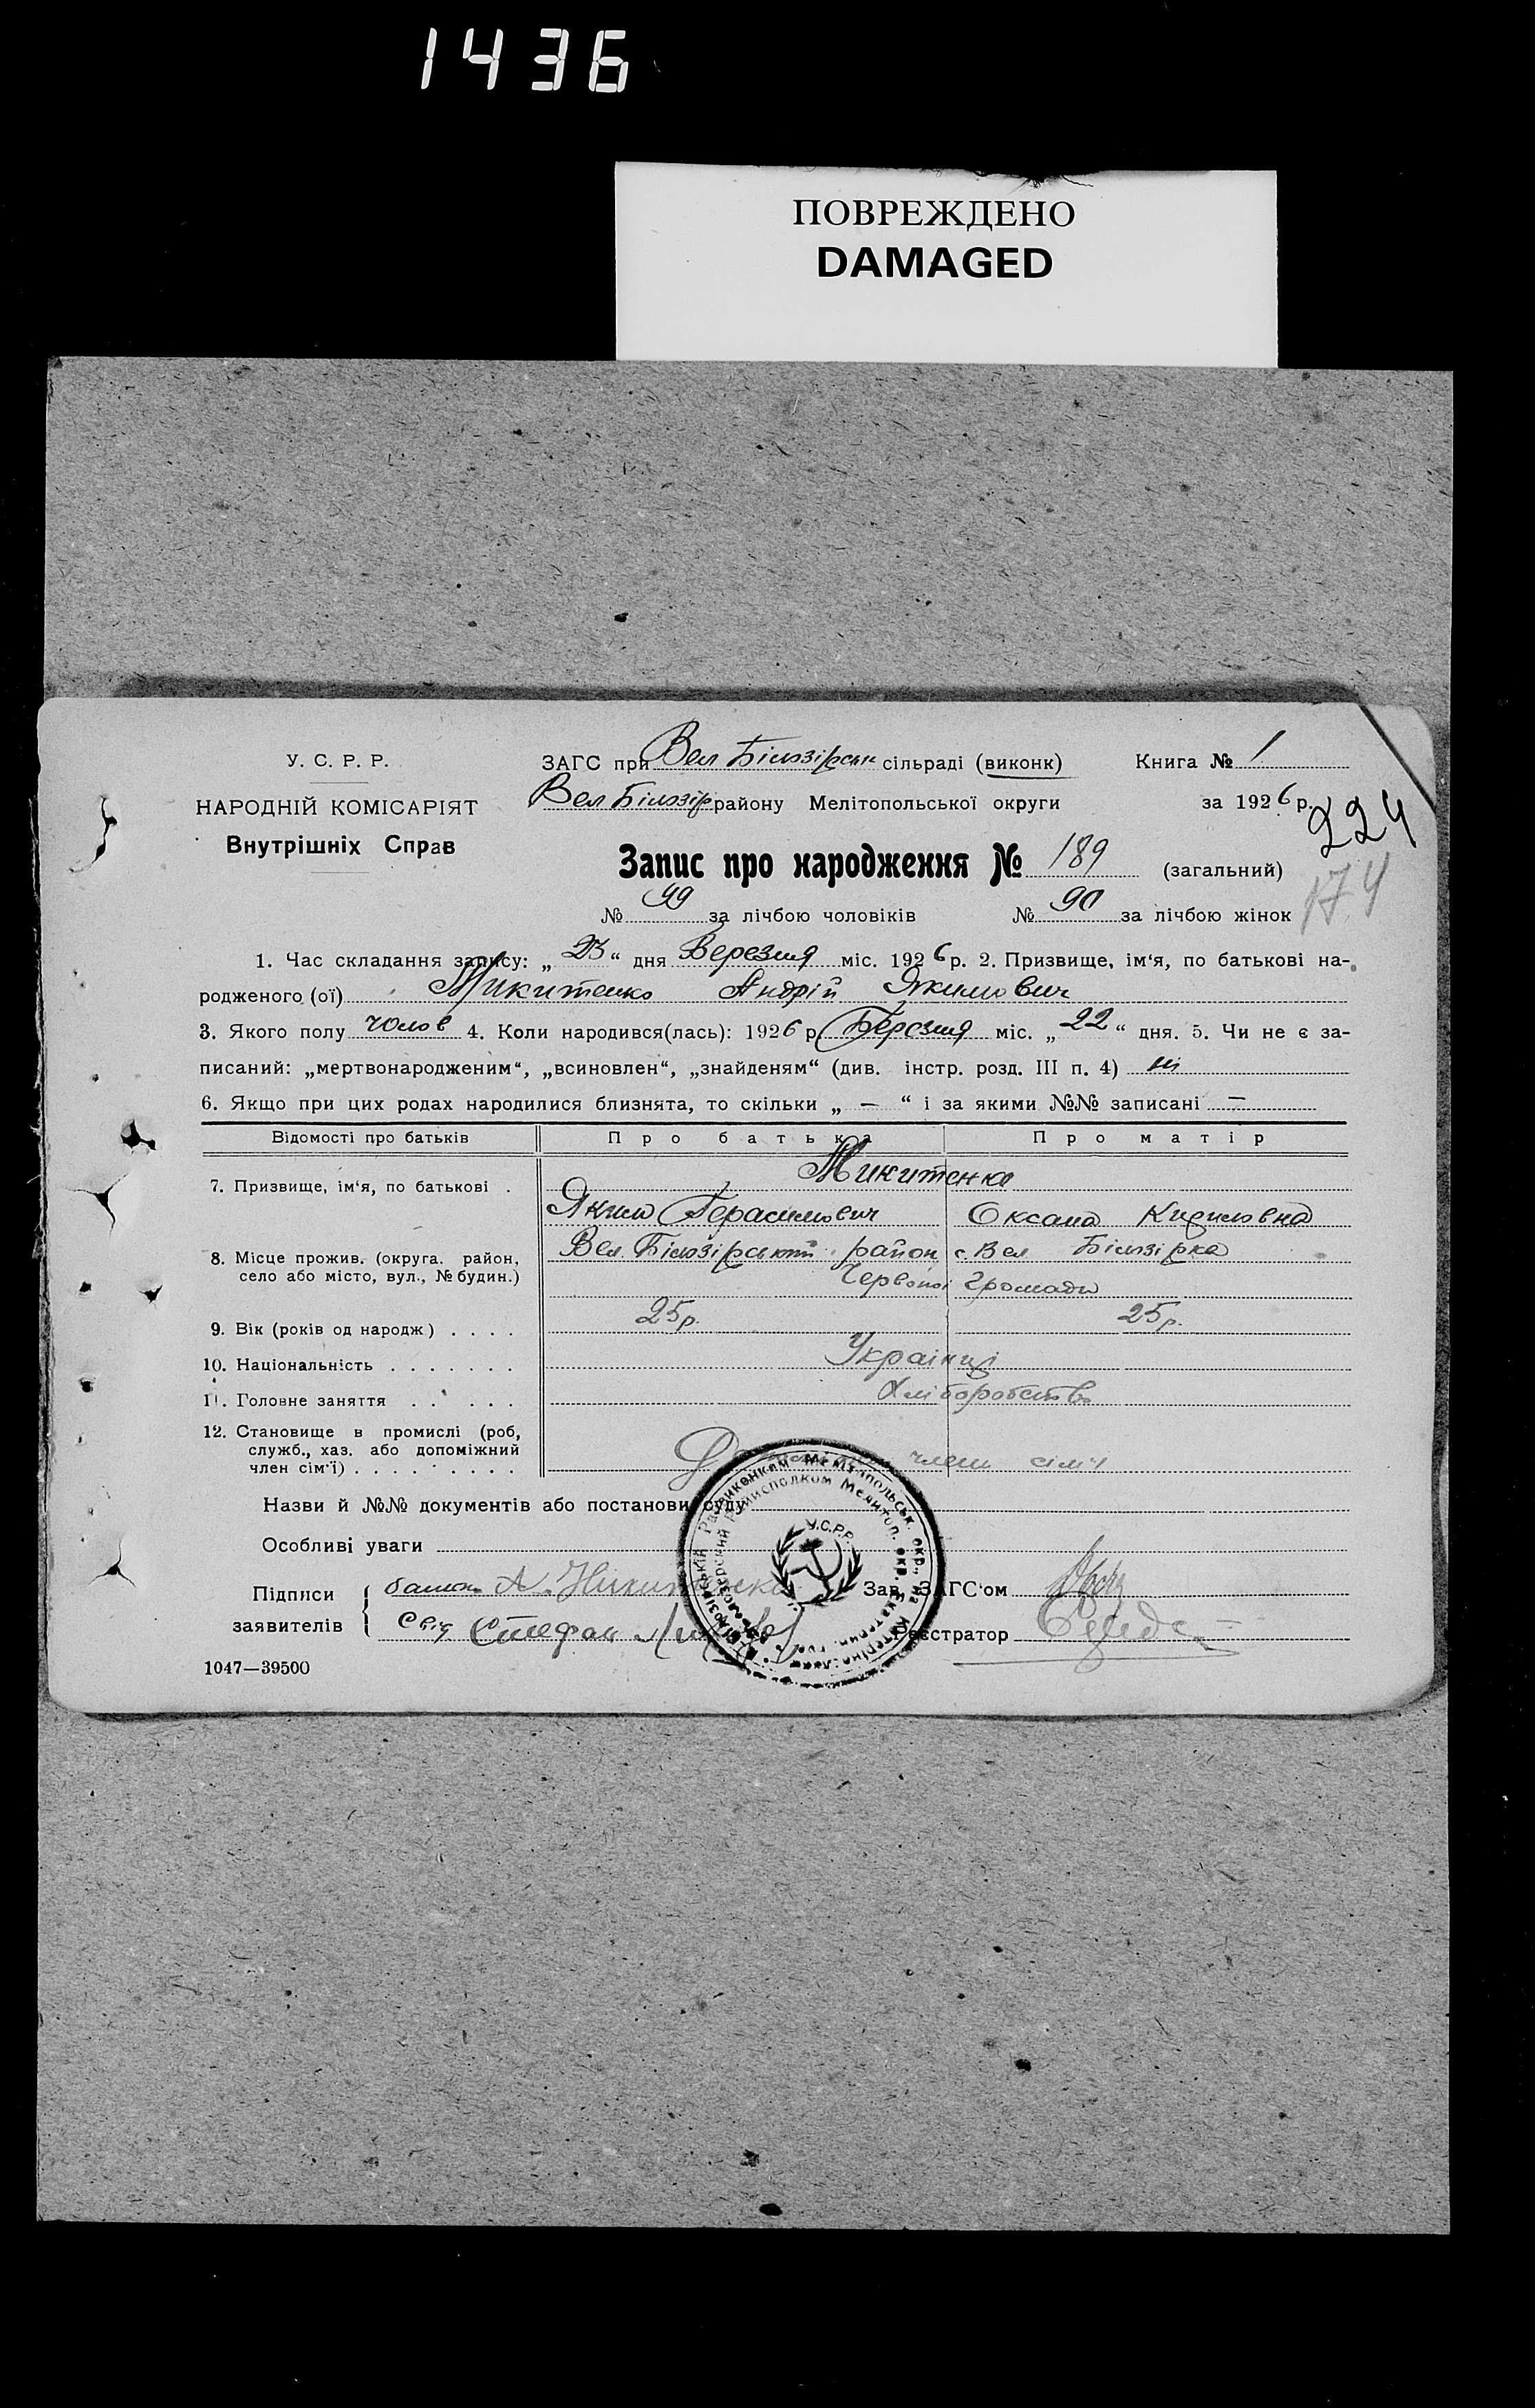 1436
ПОВРЕЖДЕНО
DAMAGED
У. С. Р. Р.
ЗАГС при Вел Білозірськ сільраді (виконк) Книга № 1
НАРОДНІЙ КОМІСАРІЯТ
Вел Білозір району Мелітопольської округи за 1926 р.
Внутрішніх Справ
224
Запис про народження № 189 (загальний)
174
№ 99 за лічбою чоловіків № 90 за лічбою жінок
1. Час складання запису: „ 23 “ дня Березня міс. 1926 р. 2. Призвище, ім‘я, по батькові на-
родженого (ої) Микитенко Андрій Якимович
3. Якого полу чолов 4. Коли народився(лась): 1926 р. Березня міс. „ 22 “ дня. 5. Чи не є за-
писаний: „мертвонародженим“, „всиновлен“, „знайденям“ (див. інстр. розд. III п. 4) ні
6. Якщо при цих родах народилися близнята, то скільки „ — “ і за якими №№ записані —
Відомості про батьків Про батька Про матір
7. Призвище, ім‘я, по батькові . Микитенко
Яким Герасимович Оксана Кириловна
8. Місце прожив. (округа. район, Вел. Білозірський район с. Вел Білозірка
село або місто, вул., № будин.) Червоної громади
9. Вік (років од народж) . . . . 25р. 25р.
10. Національність . . . . . . . Українці
11. Головне заняття . . . . . . Хліборобство
12. Становище в промислі (роб,
служб., хаз. або допоміжний
член сім‘ї) . . . . . . . . . член сім'ї
Назви й №№ документів або постанови суду
Особливі уваги
Підписи
заявителів
батько А. Никитенко
Свід Стефан
Зав. ЗАГС‘ом
Реєстратор
У.С.Р.Р.
1047—39500